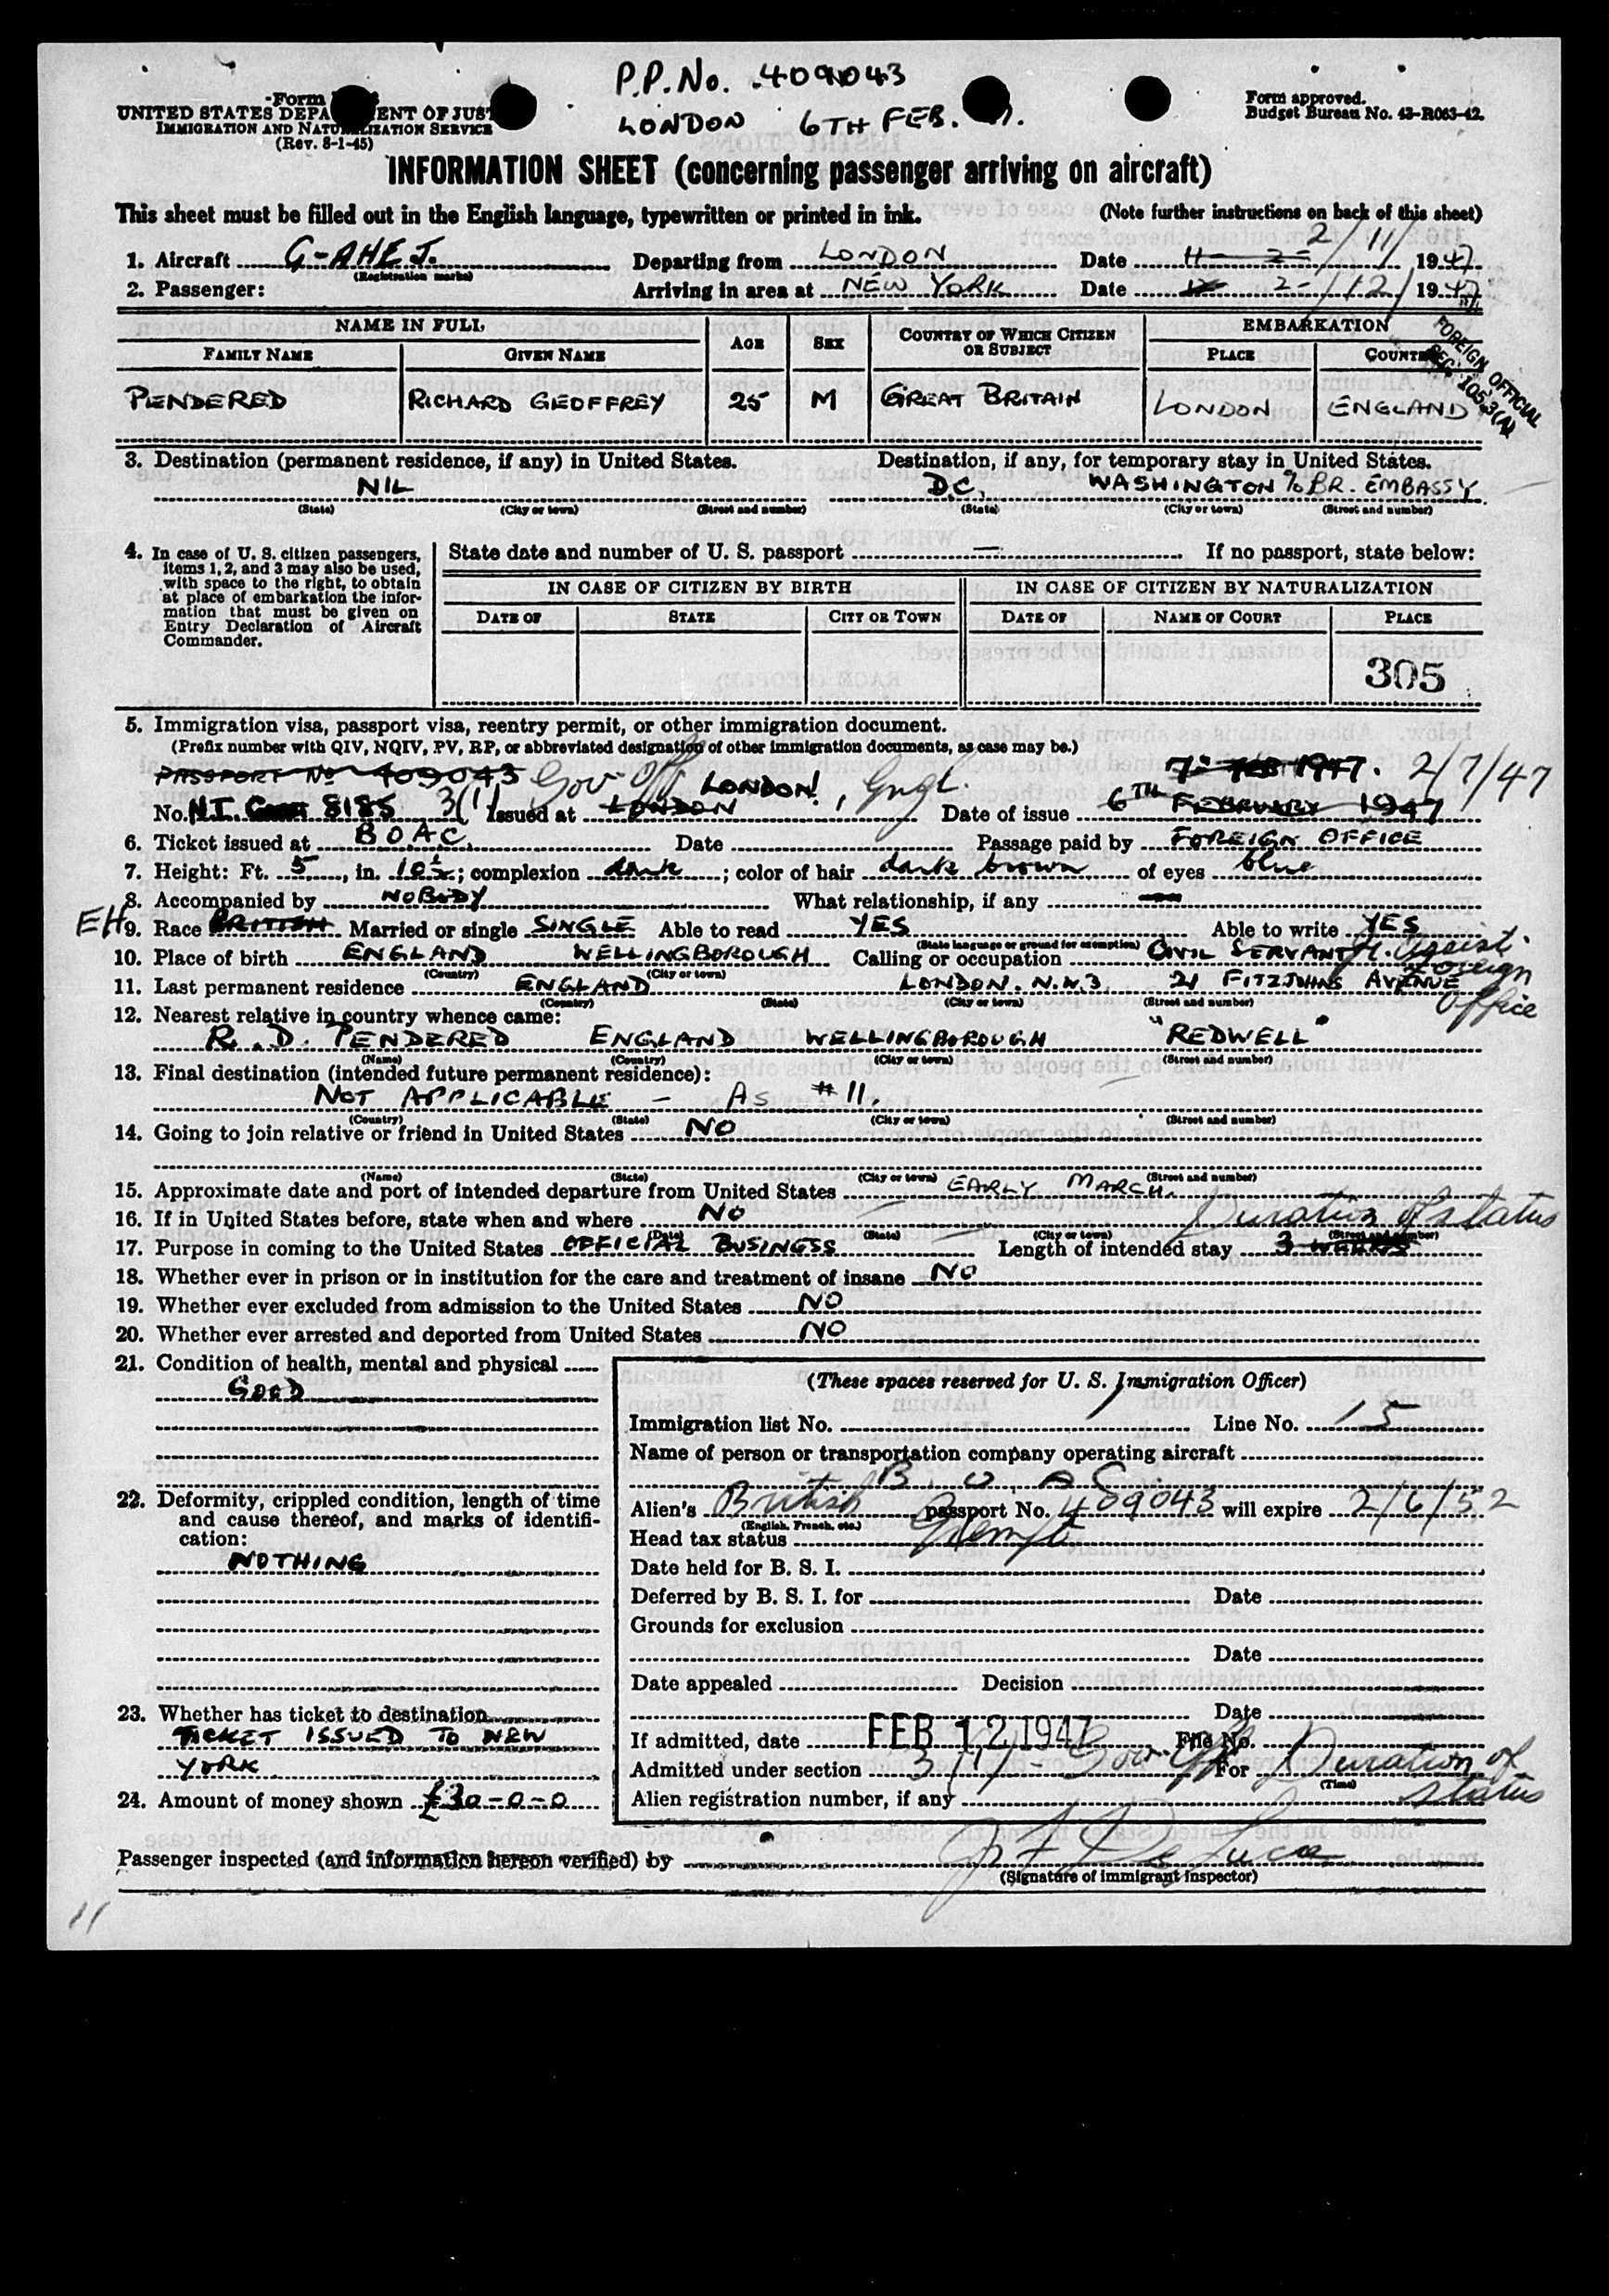 P.P. No. 409043
LONDON 6TH FEB.
Form
UNITED STATES DEPA ENT OF JUST
IMMIGRATION AND NATURALIZATION SERVICE
(Rev. 8-1-45)
Form approved.
Budget Bureau No. 43-R063-42.
INFORMATION SHEET (concerning passenger arriving on aircraft)
This sheet must be filled out in the English language, typewritten or printed in ink. (Note further instructions on back of this sheet)
1. Aircraft G-AHEJ. Departing from LONDON Date 11-2- 2/11/ 1947
(Registration marks)
2. Passenger: Arriving in area at NEW YORK Date 12 2-/12/ 1947
NAME IN FULL AGE SEX COUNTRY OF WHICH CITIZEN OR SUBJECT EMBARKATION
FAMILY NAME GIVEN NAME PLACE COUNTRY
FOREIGN OFFICIAL
SEC. 105.3(A)
PENDERED RICHARD GEOFFREY 25 M GREAT BRITAIN LONDON ENGLAND
3. Destination (permanent residence, if any) in United States. Destination, if any, for temporary stay in United States.
NIL D.C. WASHINGTON c/o BR. EMBASSY
(State) (City or town) (Street and number) (State) (City or town) (Street and number)
4. In case of U. S. citizen passengers, items 1, 2, and 3 may also be used, with space to the right, to obtain at place of embarkation the information that must be given on Entry Declaration of Aircraft Commander.
State date and number of U. S. passport — If no passport, state below:
IN CASE OF CITIZEN BY BIRTH IN CASE OF CITIZEN BY NATURALIZATION
DATE OF STATE CITY OR TOWN DATE OF NAME OF COURT PLACE
305
5. Immigration visa, passport visa, reentry permit, or other immigration document.
(Prefix number with QIV, NQIV, PV, RP, or abbreviated designation of other immigration documents, as case may be.)
PASSPORT No 409043 Gov Off LONDON, Engl. 7 FEB 1947. 2/7/47
No. N.I. 8185 3(1) Issued at LONDON Date of issue 6TH FEBRUARY 1947
6. Ticket issued at BOAC Date Passage paid by FOREIGN OFFICE
7. Height: Ft. 5, in. 10½; complexion dark; color of hair dark brown of eyes blue
8. Accompanied by NOBODY What relationship, if any —
EH 9. Race BRITISH Married or single SINGLE Able to read YES Able to write YES
(State language or ground for exemption)
10. Place of birth ENGLAND WELLINGBOROUGH Calling or occupation CIVIL SERVANT
(Country) (City or town)
Foreign Office
11. Last permanent residence ENGLAND LONDON. N.W.3. 21 FITZJOHNS AVENUE
(Country) (State) (City or town) (Street and number)
12. Nearest relative in country whence came:
R. D. PENDERED ENGLAND WELLINGBOROUGH "REDWELL"
(Name) (Country) (City or town) (Street and number)
13. Final destination (intended future permanent residence):
NOT APPLICABLE - AS # 11.
(Country) (State) (City or town) (Street and number)
14. Going to join relative or friend in United States NO
(Name) (State) (City or town) (Street and number)
15. Approximate date and port of intended departure from United States EARLY MARCH.
16. If in United States before, state when and where NO
(Date) (State) (City or town) (Street and number)
Duration of Status
17. Purpose in coming to the United States OFFICIAL BUSINESS Length of intended stay 3 WEEKS
18. Whether ever in prison or in institution for the care and treatment of insane NO
19. Whether ever excluded from admission to the United States NO
20. Whether ever arrested and deported from United States NO
21. Condition of health, mental and physical
GOOD
22. Deformity, crippled condition, length of time and cause thereof, and marks of identification:
NOTHING
23. Whether has ticket to destination
TICKET ISSUED TO NEW
YORK
24. Amount of money shown £30-0-0
(These spaces reserved for U. S. Immigration Officer)
Immigration list No. 1 Line No. 15
Name of person or transportation company operating aircraft
B O A C
Alien's British passport No. 409043 will expire 2/6/52
(English, French, etc.)
Head tax status Exempt
Date held for B. S. I.
Deferred by B. S. I. for Date
Grounds for exclusion
Date
Date appealed Decision
Date
If admitted, date FEB 12 1947 File No.
Admitted under section 3(1) - Gov Off For Duration of Status
(Time)
Alien registration number, if any
Passenger inspected (and information hereon verified) by
(Signature of immigrant inspector)
11